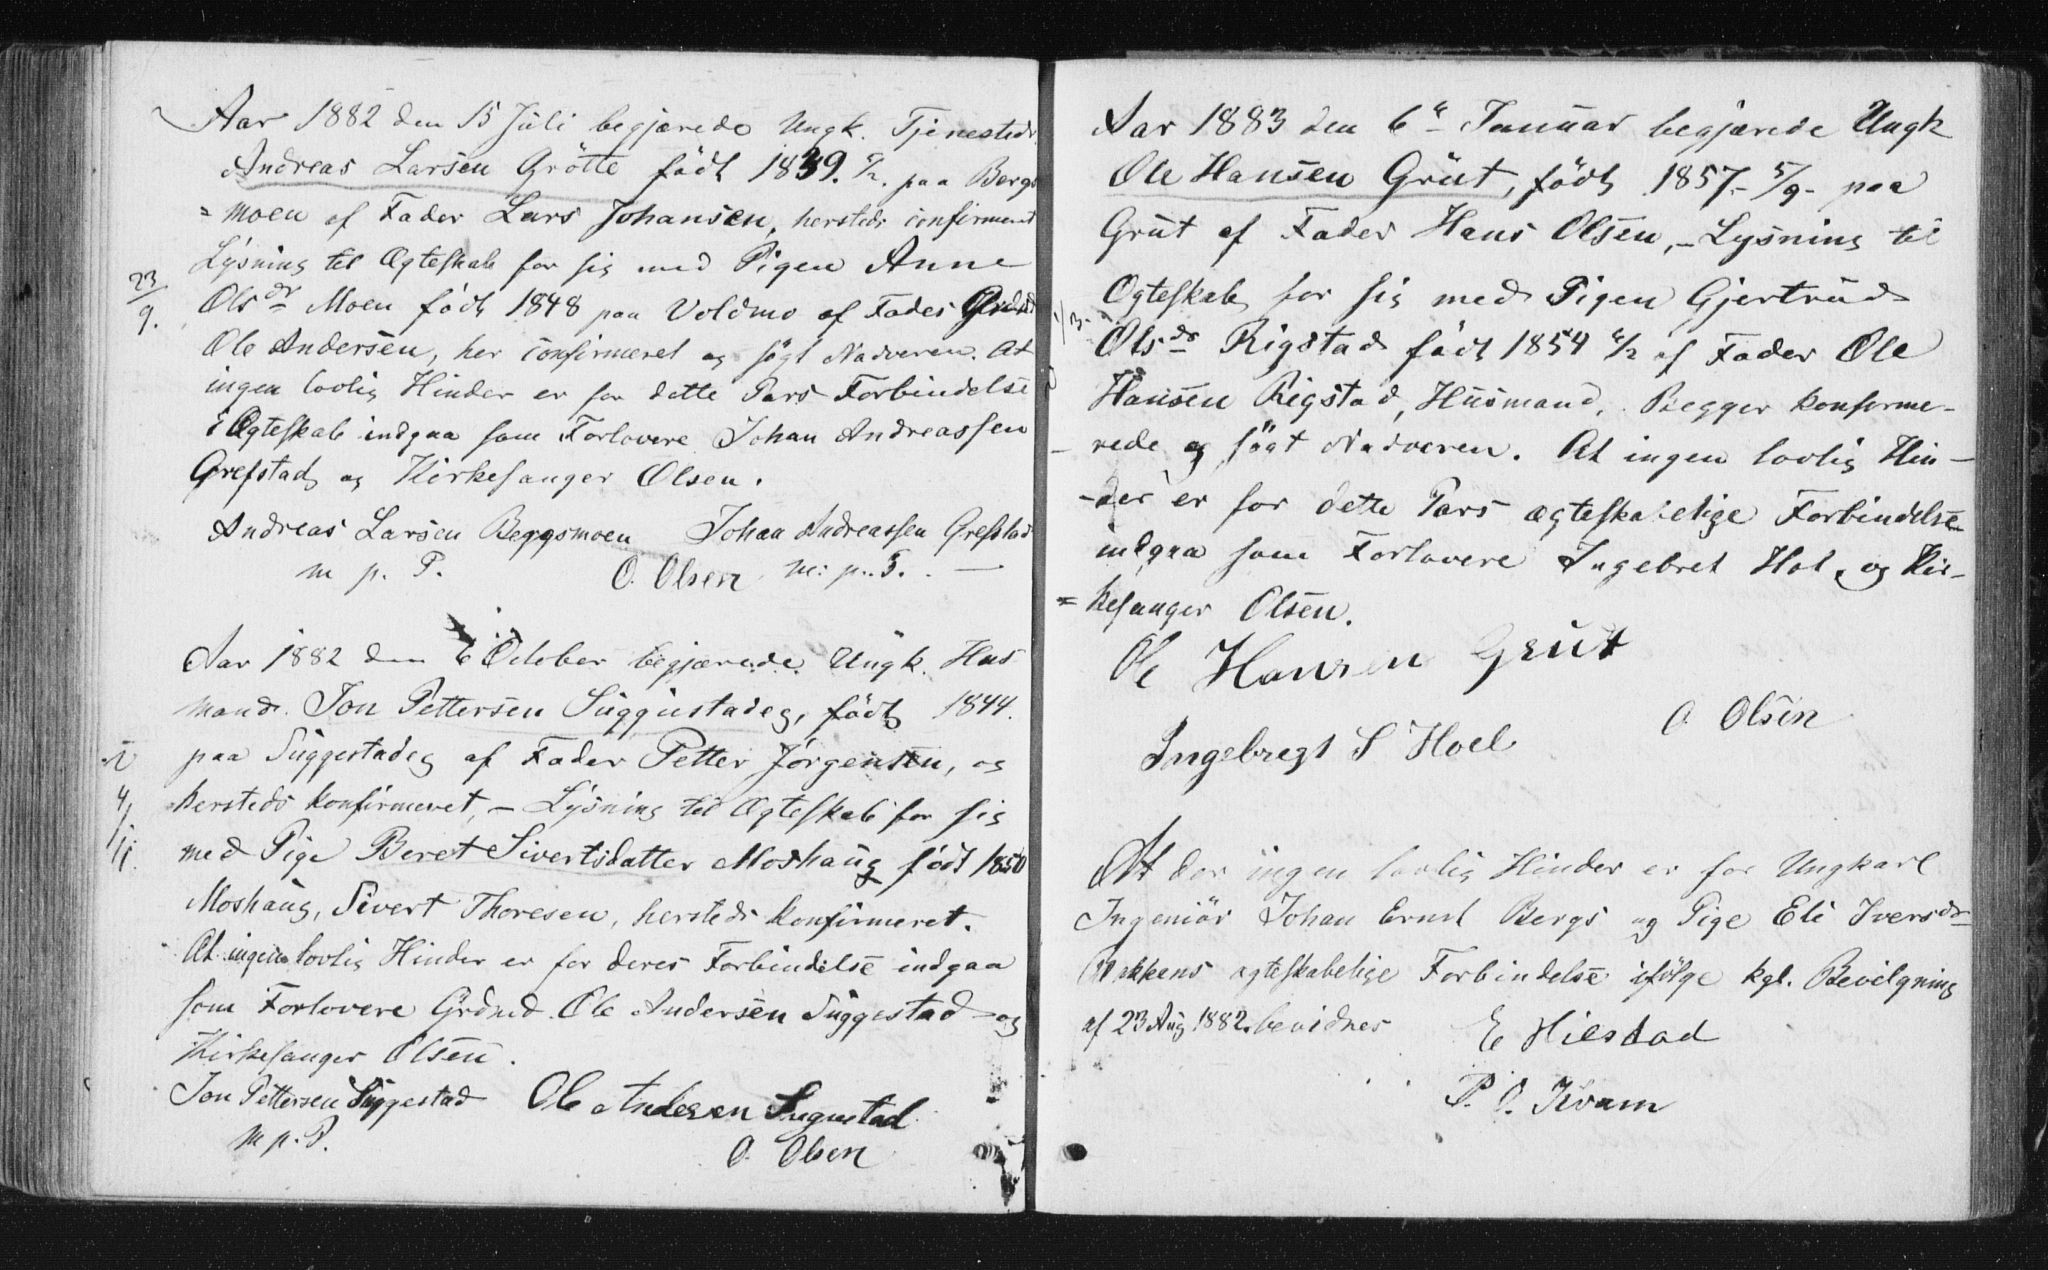 Aar 1882 den 15 Juli begjærede Ungk. Tjenestedr.
Andreas Larsen Grötte födt 1839. paa Bergs
= moen af Fader Lars Johansen, hersteds confirmeret
Lysning til Ægteskab for sig med Pigen Anne
23/9. Olsdr Moen födt 1848 paa Voldmo af Fader
Ole Andersen, her confirmeret og sögt Nadveren. At
ingen lovlig Hinder er for dette Pars Forbindelse
i Ægteskab indgaa som Forlovere Johan Andreassen
Grefstad og Kirkesanger Olsen.
Andreas Larsen Bergsmoen Johan Andreassen Grefstad
m p. P. O. Olsen m: p. P.
Aar 1882 den 6 October begjærede Ungk. Hus
mand. Jon Pettersen Suggustadeg, födt 1844.
paa Suggestadeg af Fader Petter Jörgensen, og
hersteds konfirmeret, – Lysning til Ægteskab for sig
4/11. med Pige Beret Sivertsdatter Moshaug födt 1850
Moshaug, Sivert Thoresen, hersteds konfirmeret.
At ingen lovlig Hinder er for deres Forbindelse indgaa
som Forlovere Grdmd. Ole Andersen Suggestad og
Kirkesanger Olsen.
Jon Pettersen Suggestad Ole Andersen Sugustad
m p. P.
O. Olsen
Aar 1883 den 6te Januar begjærede Ungk
Ole Hansen Grut, födt 1857 – 5/9 – paa
Grut af Fader Hans Olsen, – Lysning til
Ægteskab for sig med Pigen Gjertrud
Olsdr Rigstad födt 1854 af Fader Ole
Hansen Rigstad, Husmand, Begger konfirme-
rede og sögt Nadveren. At ingen lovlig Hin-
-der er for dette Pars ægteskabelige Forbindelse
indgaa som Forlovere Ingebret Hol, og Kir-
= kesanger Olsen.
Ole Hansen Grut
O Olsen
Ingebregt S Hoel
At der ingen lovlig Hinder er for Ungkarl
Ingeniör Johan Ernst Bergs og Pige Eli Iversdr
Bakkens ægteskabelige Forbindelse ifölge kgl. Bevilgning
af 23 Aug 1882. bevidnes
E Hilstad
P. O. Kvam